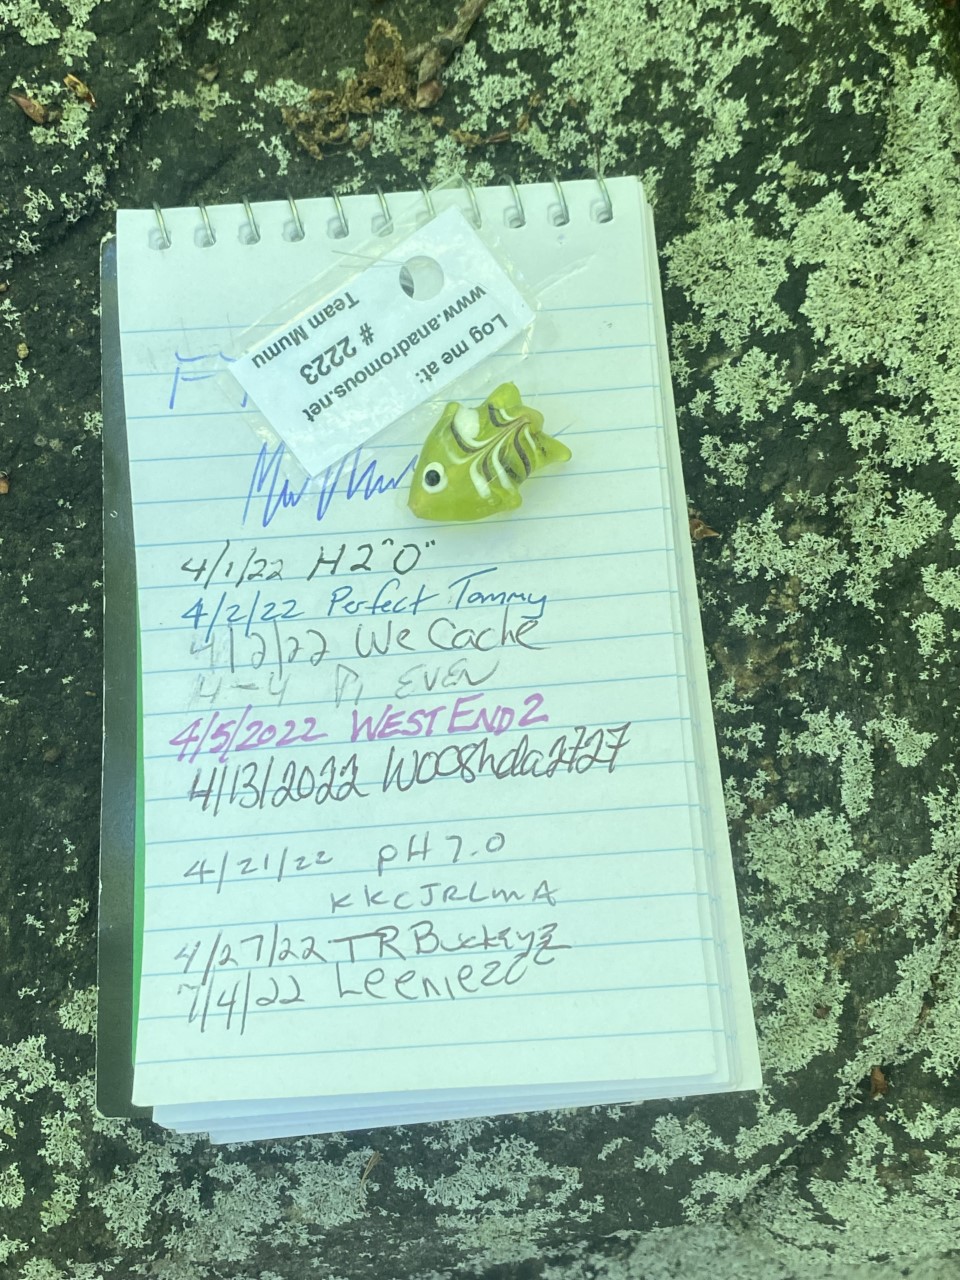 Log me at:
www.anadromous.net
# 2223
Team Mumu
4/1/22 H2"O"
4/2/22 Perfect Tommy
4/2/22 We Cache
4-4 EVEN
4/5/2022 WEST END 2
4/13/2022 Wooshda2727
4/21/22 pH 7.0
KKCJRLMA
4/27/22 TRBuckeyE
7/4/22